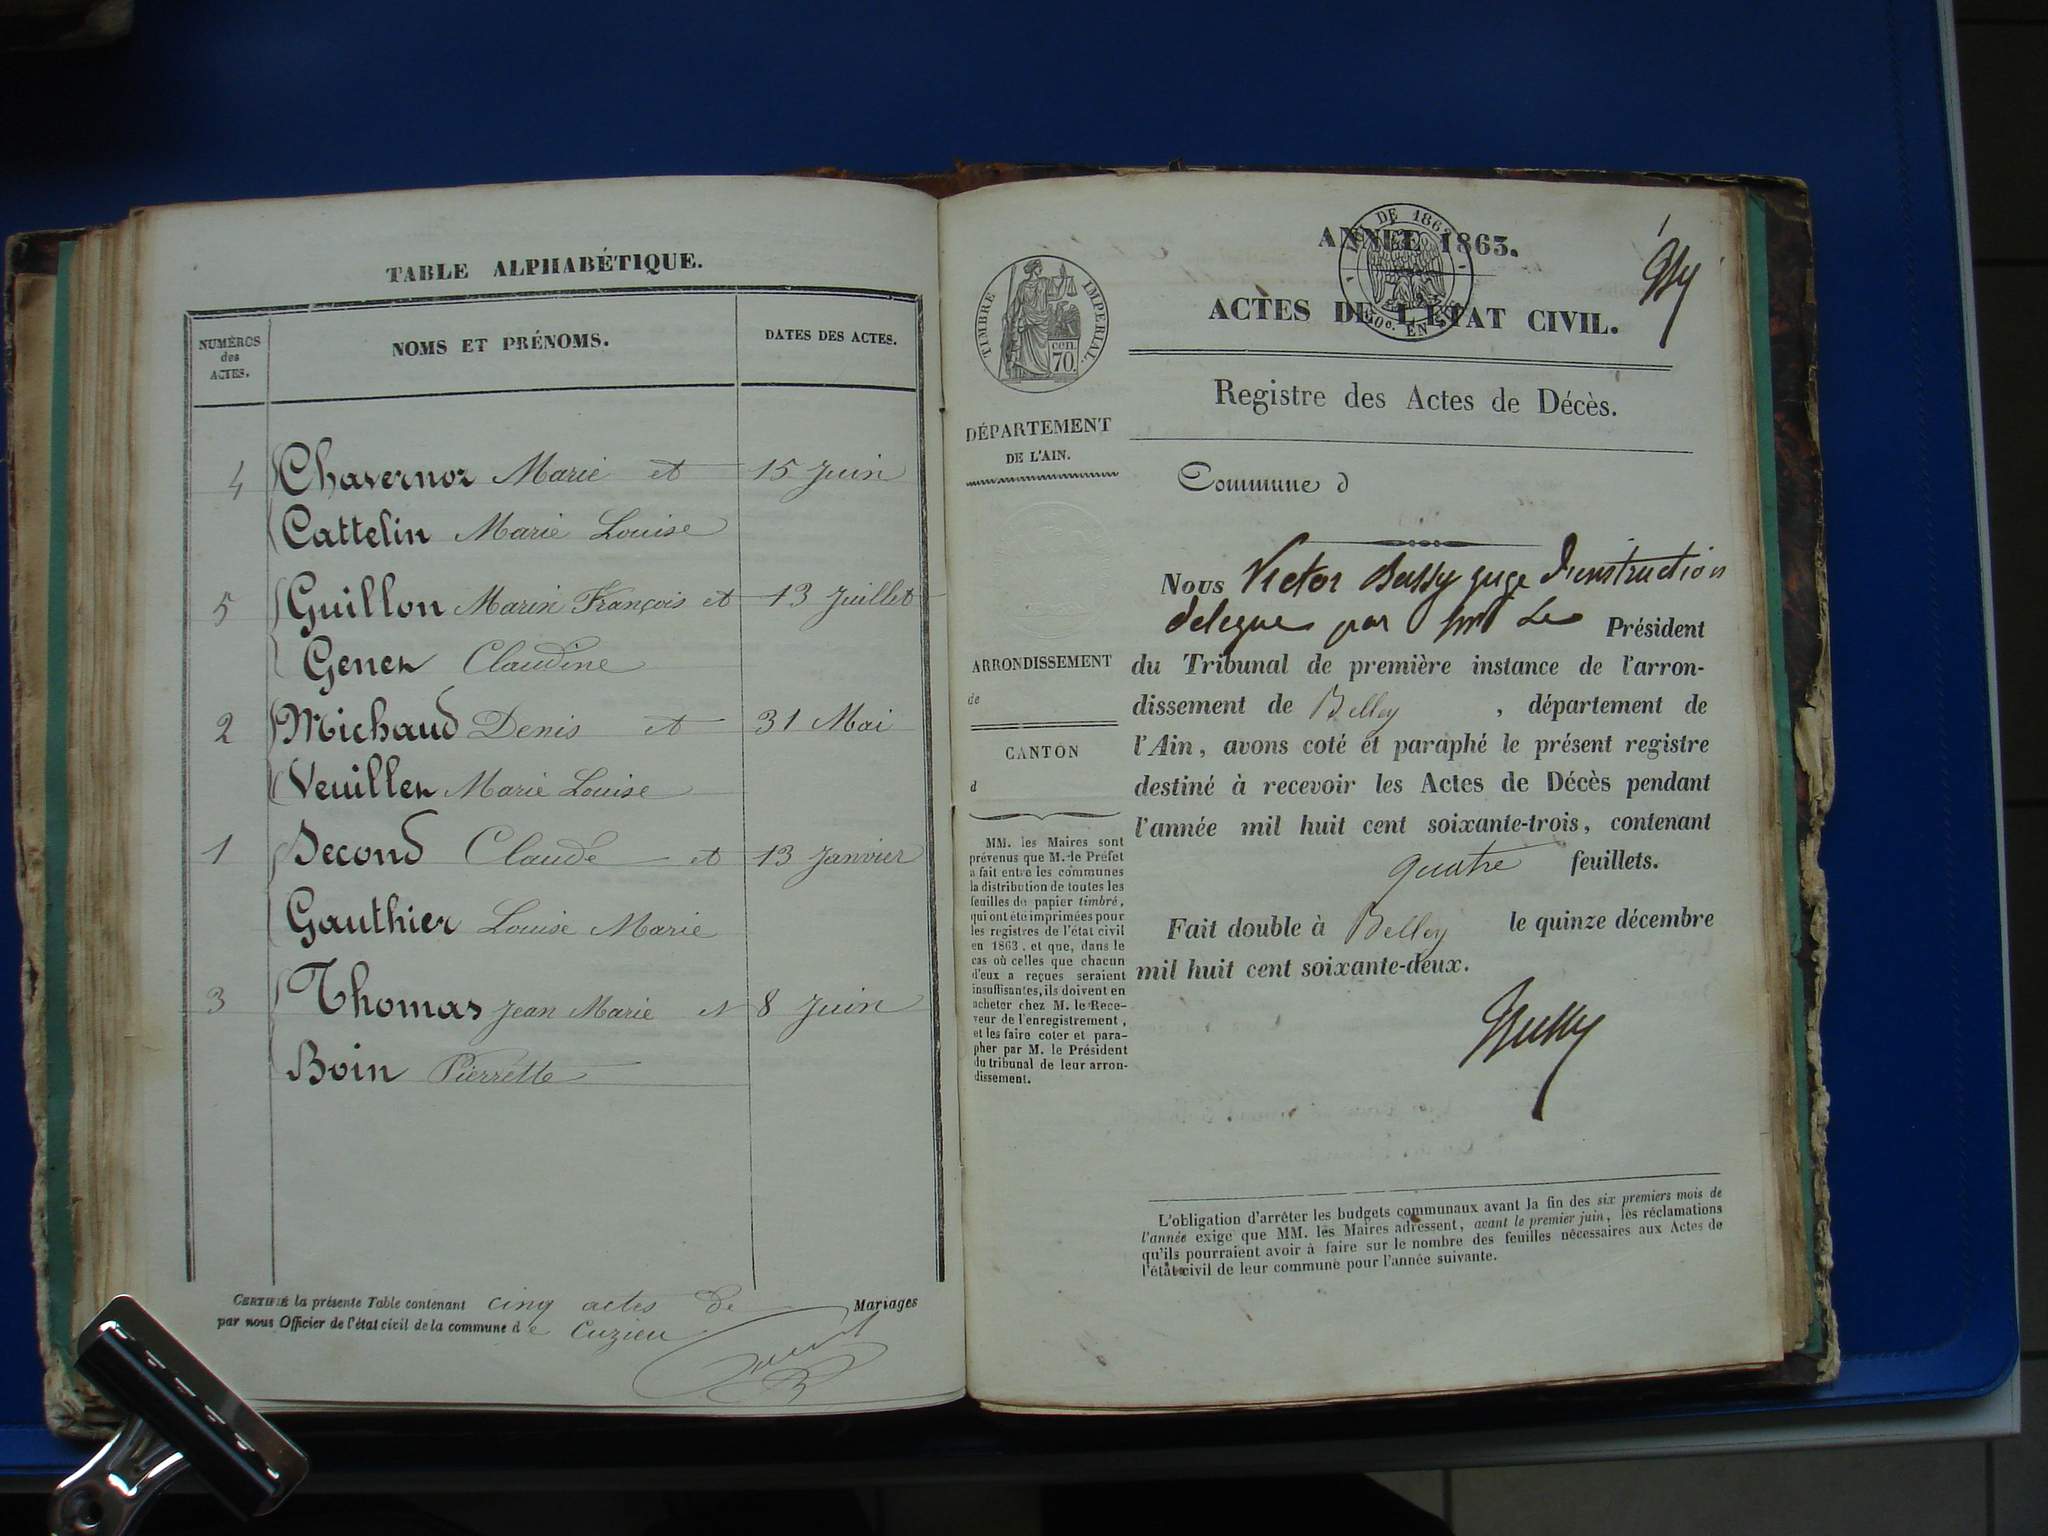 TABLE ALPHABÉTIQUE.
NUMÉROS
des
ACTES.
NOMS ET PRÉNOMS.
DATES DES ACTES.
4 Chavernoz Marie et 15 Juin
Cattelin Marie Louise
5 Guillon Marin François et 13 Juillet
Genen Claudine
2 Michaud Denis et 31 Mai
Veuillen Marie Louise
1 Second Claude et 13 Janvier
Gauthier Louise Marie
3 Thomas Jean Marie et 8 Juin
Boin Pierrette
CERTIFIÉ la présente Table contenant cinq actes de Mariages
par nous Officier de l'état civil de la commune de Cuzieu
TIMBRE IMPÉRIAL.
cen.
70.
DE 1862
50c. EN
ANNÉE 1863.
1
ACTES DE L'ÉTAT CIVIL.
Registre des Actes de Décès.
DÉPARTEMENT
DE L'AIN.
ARRONDISSEMENT
de
CANTON
d
MM. les Maires sont
prévenus que M. le Préfet
a fait entre les communes
la distribution de toutes les
feuilles de papier timbré,
qui ont été imprimées pour
les registres de l'état civil
en 1863, et que, dans le
cas où celles que chacun
d'eux a reçues seraient
insuffisantes, ils doivent en
acheter chez M. le Rece-
veur de l'enregistrement,
et les faire coter et para-
pher par M. le Président
du tribunal de leur arron-
dissement.
Commune d
Nous Victor Bussy juge d'instruction
delegue par mr Le Président
du Tribunal de première instance de l'arron-
dissement de Belley, département de
l'Ain, avons coté et paraphé le présent registre
destiné à recevoir les Actes de Décès pendant
l'année mil huit cent soixante-trois, contenant
quatre feuillets.
Fait double à Belley le quinze décembre
mil huit cent soixante-deux.
Bussy
L'obligation d'arrêter les budgets communaux avant la fin des six premiers mois de
l'année exige que MM. les Maires adressent, avant le premier juin, les réclamations
qu'ils pourraient avoir à faire sur le nombre des feuilles nécessaires aux Actes de
l'état civil de leur commune pour l'année suivante.